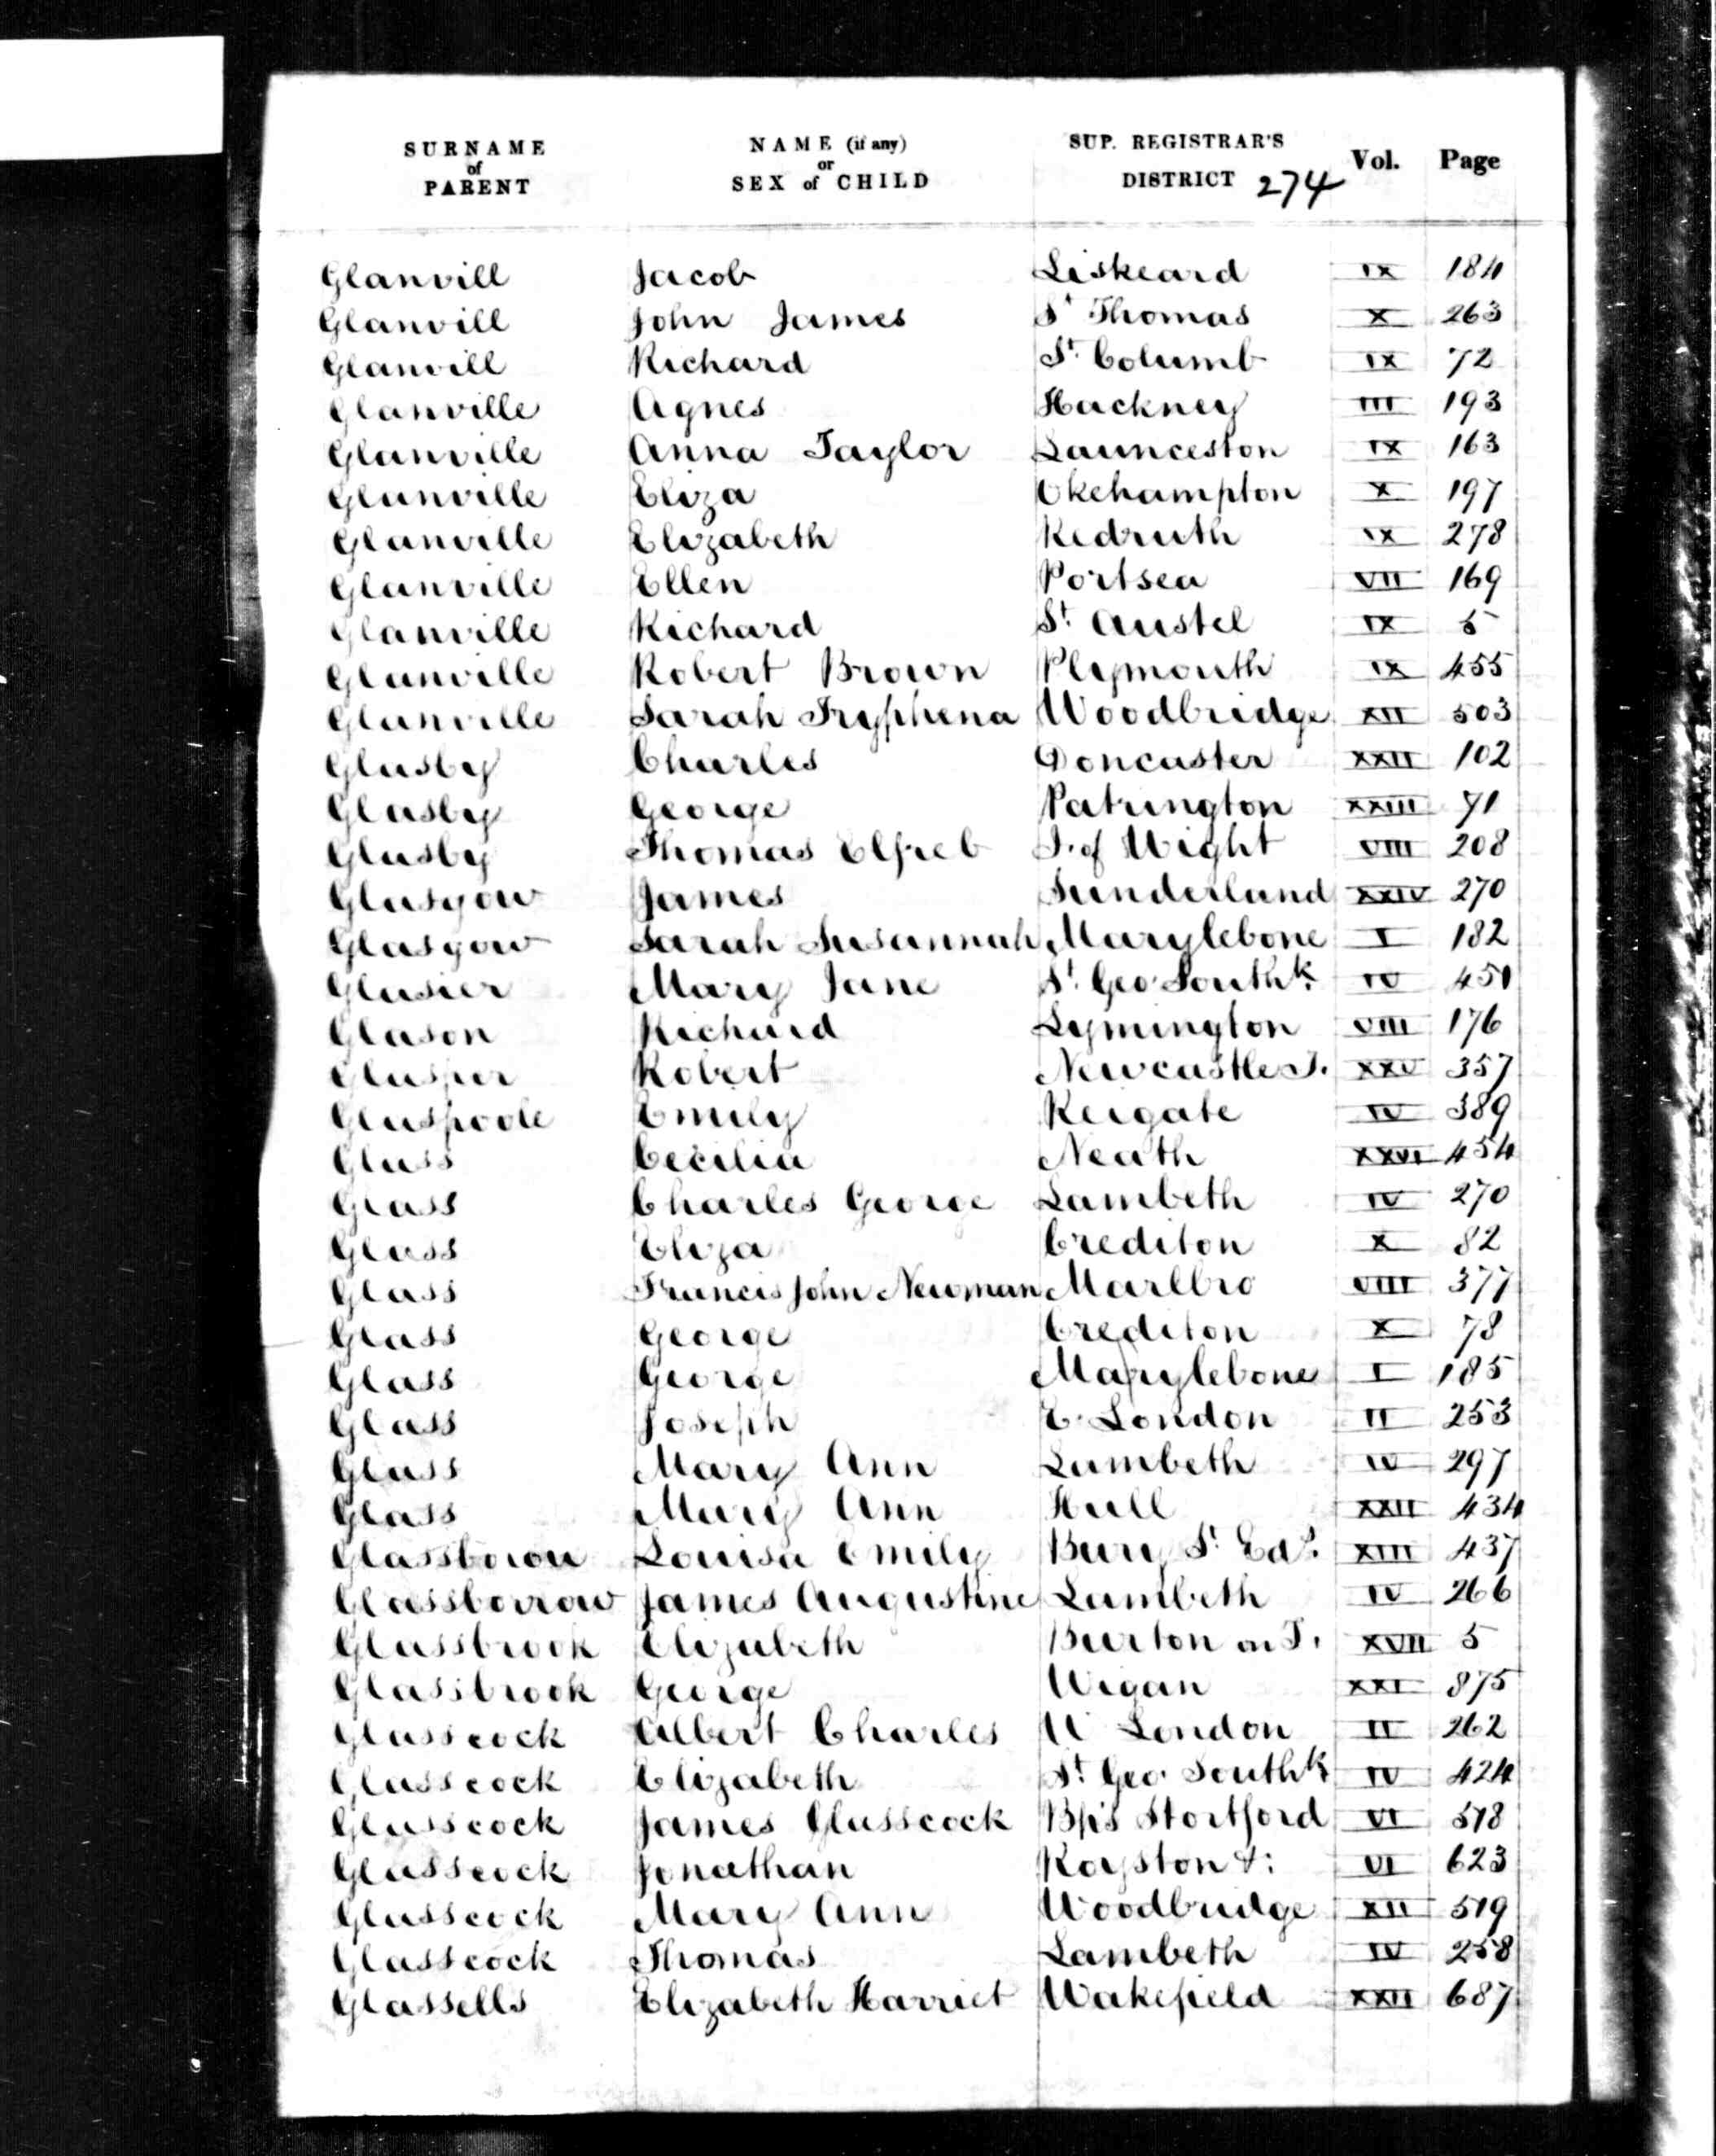 SURNAME of PARENT NAME (if any) or SEX of CHILD SUP. REGISTRAR'S DISTRICT 274 Vol. Page
Glanvill Jacob Liskeard IX 184
Glanvill John James St Thomas X 263
Glanvill Richard St. Columb IX 72
Glanville Agnes Hackney III 193
Glanville Anna Taylor Launceston IX 163
Glanville Eliza Okehampton X 197
Glanville Elizabeth Redruth IX 278
Glanville Ellen Portsea VII 169
Glanville Richard St. Austel IX 5
Glanville Robert Brown Plymouth IX 455
Glanville Sarah Tryphena Woodbridge XII 503
Glasby Charles Doncaster XXII 102
Glasby George Patrington XXIII 71
Glasby Thomas Elfreb I. of Wight VIII 208
Glasgow James Sunderland XXIV 270
Glasgow Sarah Susannah Marylebone I 182
Glasier Mary Jane St. Geo. Southk. IV 451
Glason Richard Lymington VIII 176
Glasper Robert Newcastle T. XXV 357
Glaspoole Emily Reigate IV 389
Glass Cecilia Neath XXVI 454
Glass Charles George Lambeth IV 270
Glass Eliza Crediton X 82
Glass Francis John Newman Marlbro VIII 377
Glass George Crediton X 78
Glass George Marylebone I 185
Glass Joseph E. London II 253
Glass Mary Ann Lambeth IV 297
Glass Mary Ann Hull XXII 434
Glassborow Louisa Emily Bury St. Eds. XIII 437
Glassborrow James Augustine Lambeth IV 266
Glassbrook Elizabeth Burton on T. XVII 5
Glassbrook George Wigan XXI 875
Glasscock Albert Charles W London II 262
Glasscock Elizabeth St. Geo. Southk IV 424
Glasscock James Glasscock Bp's Stortford VI 518
Glasscock Jonathan Royston &: VI 623
Glasscock Mary Ann Woodbridge XII 519
Glasscock Thomas Lambeth IV 258
Glassells Elizabeth Harriet Wakefield XXII 687